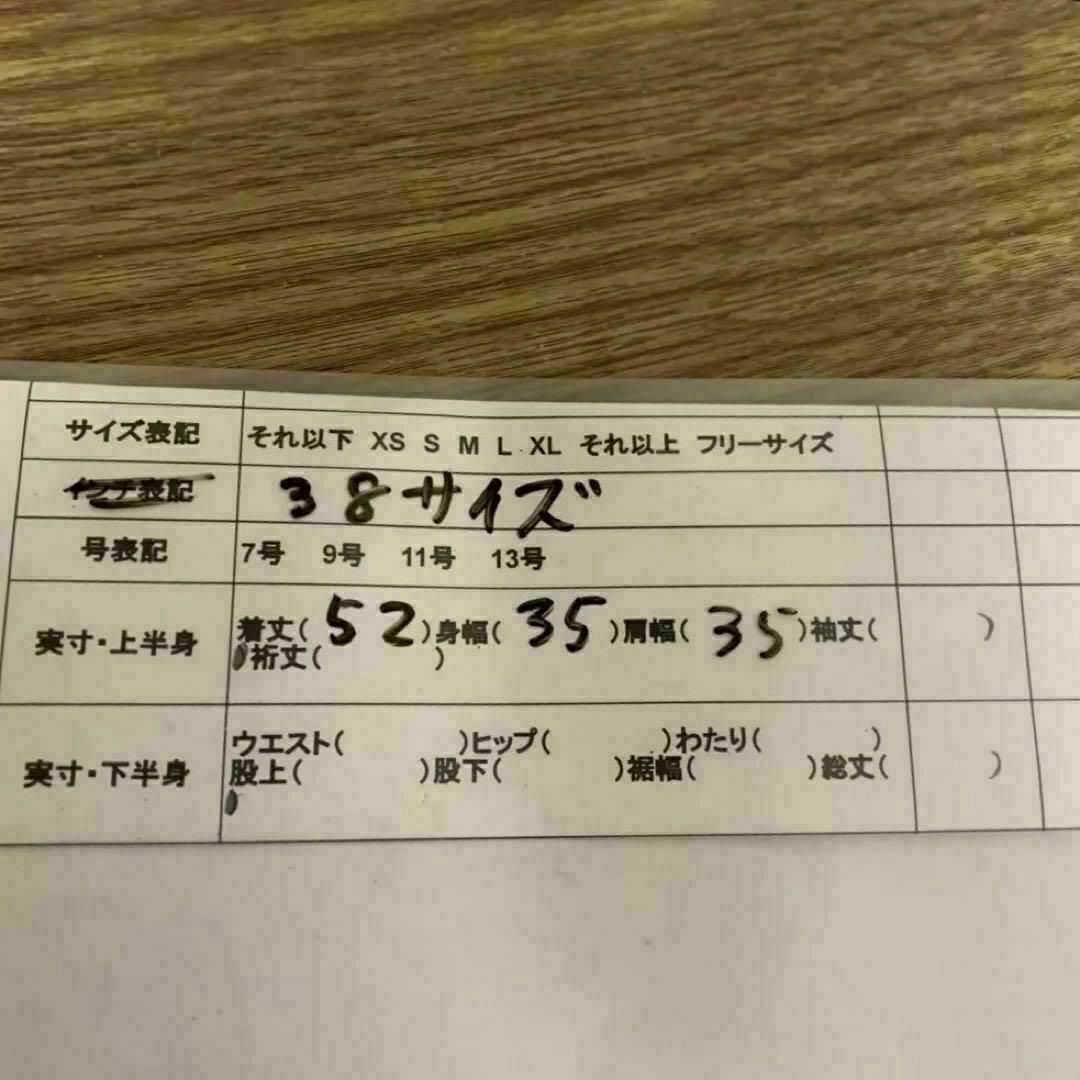 サイズ表記 それ以下 XS S M L XL それ以上 フリーサイズ
インチ表記 38サイズ
号表記 7号 9号 11号 13号
実寸・上半身 着丈( 52 )身幅( 35 )肩幅( 35 )袖丈( )
裄丈( )
実寸・下半身 ウエスト( )ヒップ( )わたり( )
股上( )股下( )裾幅( )総丈( )